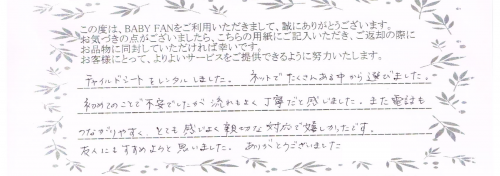 この度は、BABY FANをご利用いただきまして、誠にありがとうございます。
お気づきの点がございましたら、こちらの用紙にご記入いただき、ご返却の際に
お品物に同封していただければ幸いです。
お客様にとって、よりよいサービスをご提供できるように努力いたします。
チャイルドシートをレンタルしました。 ネットでたくさんある中から選びました。
初めてのことで不安でしたが 流れもよく丁寧だと感じました。また電話も
つながりやすく、とても感じよく親切な対応で嬉しかったです。
友人にもすすめようと思いました。 ありがとうございました